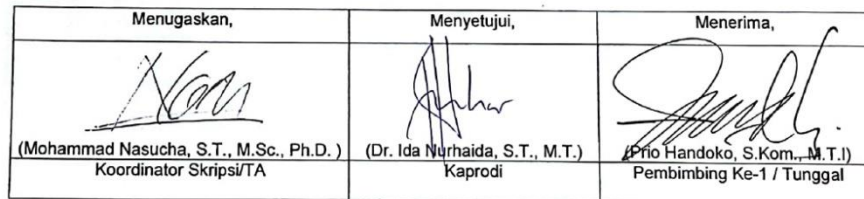 Menugaskan,
Menyetujui,
Menerima,
(Mohammad Nasucha, S.T., M.Sc., Ph.D. )
(Dr. Ida Nurhaida, S.T., M.T.)
(Prio Handoko, S.Kom., M.T.I)
Koordinator Skripsi/TA
Kaprodi
Pembimbing Ke-1 / Tunggal